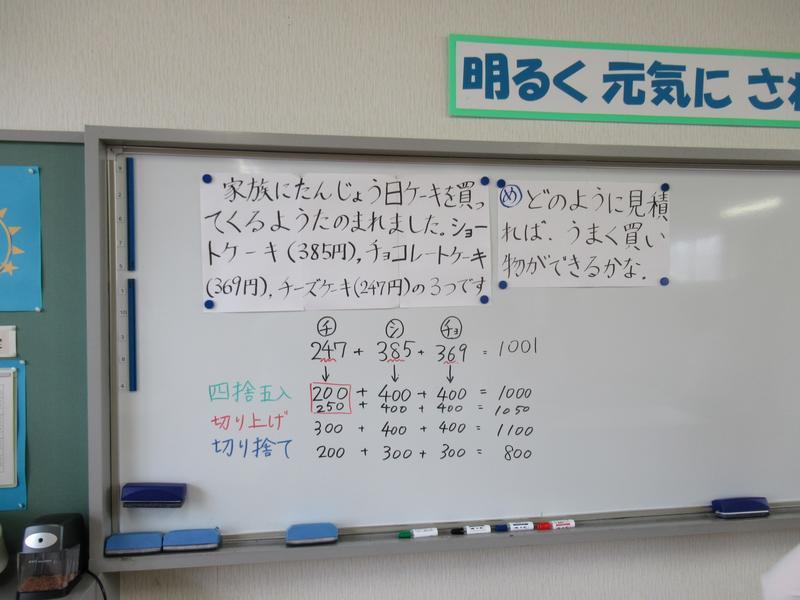 明るく 元気に さ
家族にたんじょう日ケーキを買っ
てくるようたのまれました。ショー
トケーキ(385円),チョコレートケーキ
(369円),チーズケーキ(247円)の3つです
めどのように見積
れば、うまく買い
物ができるかな.
チ シ チョ
247 + 385 + 369 = 1001
↓ ↓ ↓
四捨五入 200 + 400 + 400 = 1000
250 + 400 + 400 = 1050
切り上げ 300 + 400 + 400 = 1100
切り捨て 200 + 300 + 300 = 800